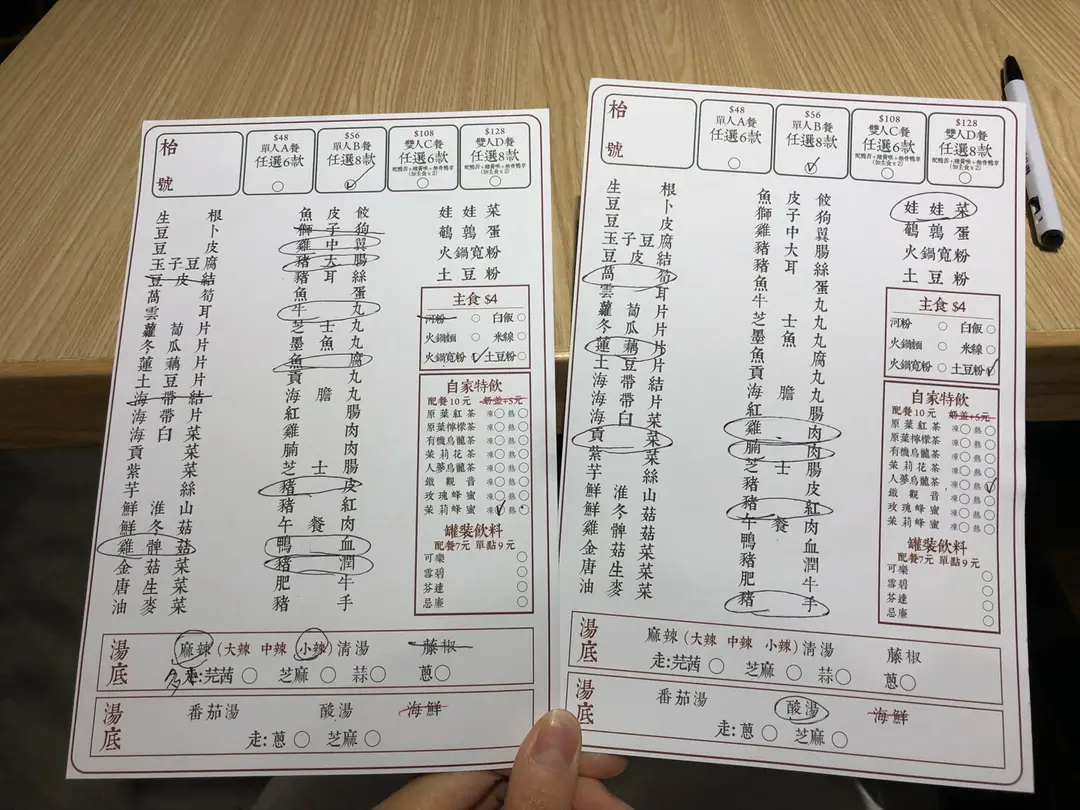 枱號
$48
單人A餐
任選6款
$56
單人B餐
任選8款
$108
雙人C餐
任選6款
(加主食x2)
$128
雙人D餐
任選8款
(加主食x2)
生根
豆卜
豆皮
玉子豆腐
豆皮結
萬筍
雲耳
蘿蔔片
冬瓜片
蓮藕片
土豆片
海帶結
海帶片
海白菜
貢菜
紫菜
芋絲
鮮淮山
鮮冬菇
雞髀菇
金菇菜
唐生菜
油麥菜
魚皮餃
獅子狗
雞中翼
豬大腸
豬耳絲
魚蛋
牛丸
芝士丸
墨魚丸
魚腐
貢丸
海膽丸
紅腸
雞肉
腩肉
芝士腸
豬皮
豬紅
午餐肉
鴨血
豬潤
肥牛
豬手
娃娃菜
鵪鶉蛋
火鍋寬粉
土豆粉
主食 $4
河粉 白飯
火鍋麵 米線
火鍋寬粉 土豆粉
自家特飲
配餐10元 奶蓋+5元
原葉紅茶 凍 熱
原葉檸檬茶 凍 熱
有機烏龍茶 凍 熱
茉莉花茶 凍 熱
人蔘烏龍茶 凍 熱
鐵觀音 凍 熱
玫瑰蜂蜜 凍 熱
茉莉蜂蜜 凍 熱
罐裝飲料
配餐7元 單點9元
可樂
雪碧
芬達
忌廉
湯底
麻辣(大辣 中辣 小辣) 清湯 藤椒
多 走:芫茜 芝麻 蒜 蔥
湯底
番茄湯 酸湯 海鮮
走:蔥 芝麻
枱號
$48
單人A餐
任選6款
$56
單人B餐
任選8款
$108
雙人C餐
任選6款
(加主食x2)
$128
雙人D餐
任選8款
(加主食x2)
生根
豆卜
豆皮
玉子豆腐
豆皮結
萬筍
雲耳
蘿蔔片
冬瓜片
蓮藕片
土豆片
海帶結
海帶片
海白菜
貢菜
紫菜
芋絲
鮮淮山
鮮冬菇
雞髀菇
金菇菜
唐生菜
油麥菜
魚皮餃
獅子狗
雞中翼
豬大腸
豬耳絲
魚蛋
牛丸
芝士丸
墨魚丸
魚腐
貢丸
海膽丸
紅腸
雞肉
腩肉
芝士腸
豬皮
豬紅
午餐肉
鴨血
豬潤
肥牛
豬手
娃娃菜
鵪鶉蛋
火鍋寬粉
土豆粉
主食 $4
河粉 白飯
火鍋麵 米線
火鍋寬粉 土豆粉
自家特飲
配餐10元 奶蓋+5元
原葉紅茶 凍 熱
原葉檸檬茶 凍 熱
有機烏龍茶 凍 熱
茉莉花茶 凍 熱
人蔘烏龍茶 凍 熱
鐵觀音 凍 熱
玫瑰蜂蜜 凍 熱
茉莉蜂蜜 凍 熱
罐裝飲料
配餐7元 單點9元
可樂
雪碧
芬達
忌廉
湯底
麻辣(大辣 中辣 小辣) 清湯 藤椒
走:芫茜 芝麻 蒜 蔥
湯底
番茄湯 酸湯 海鮮
走:蔥 芝麻